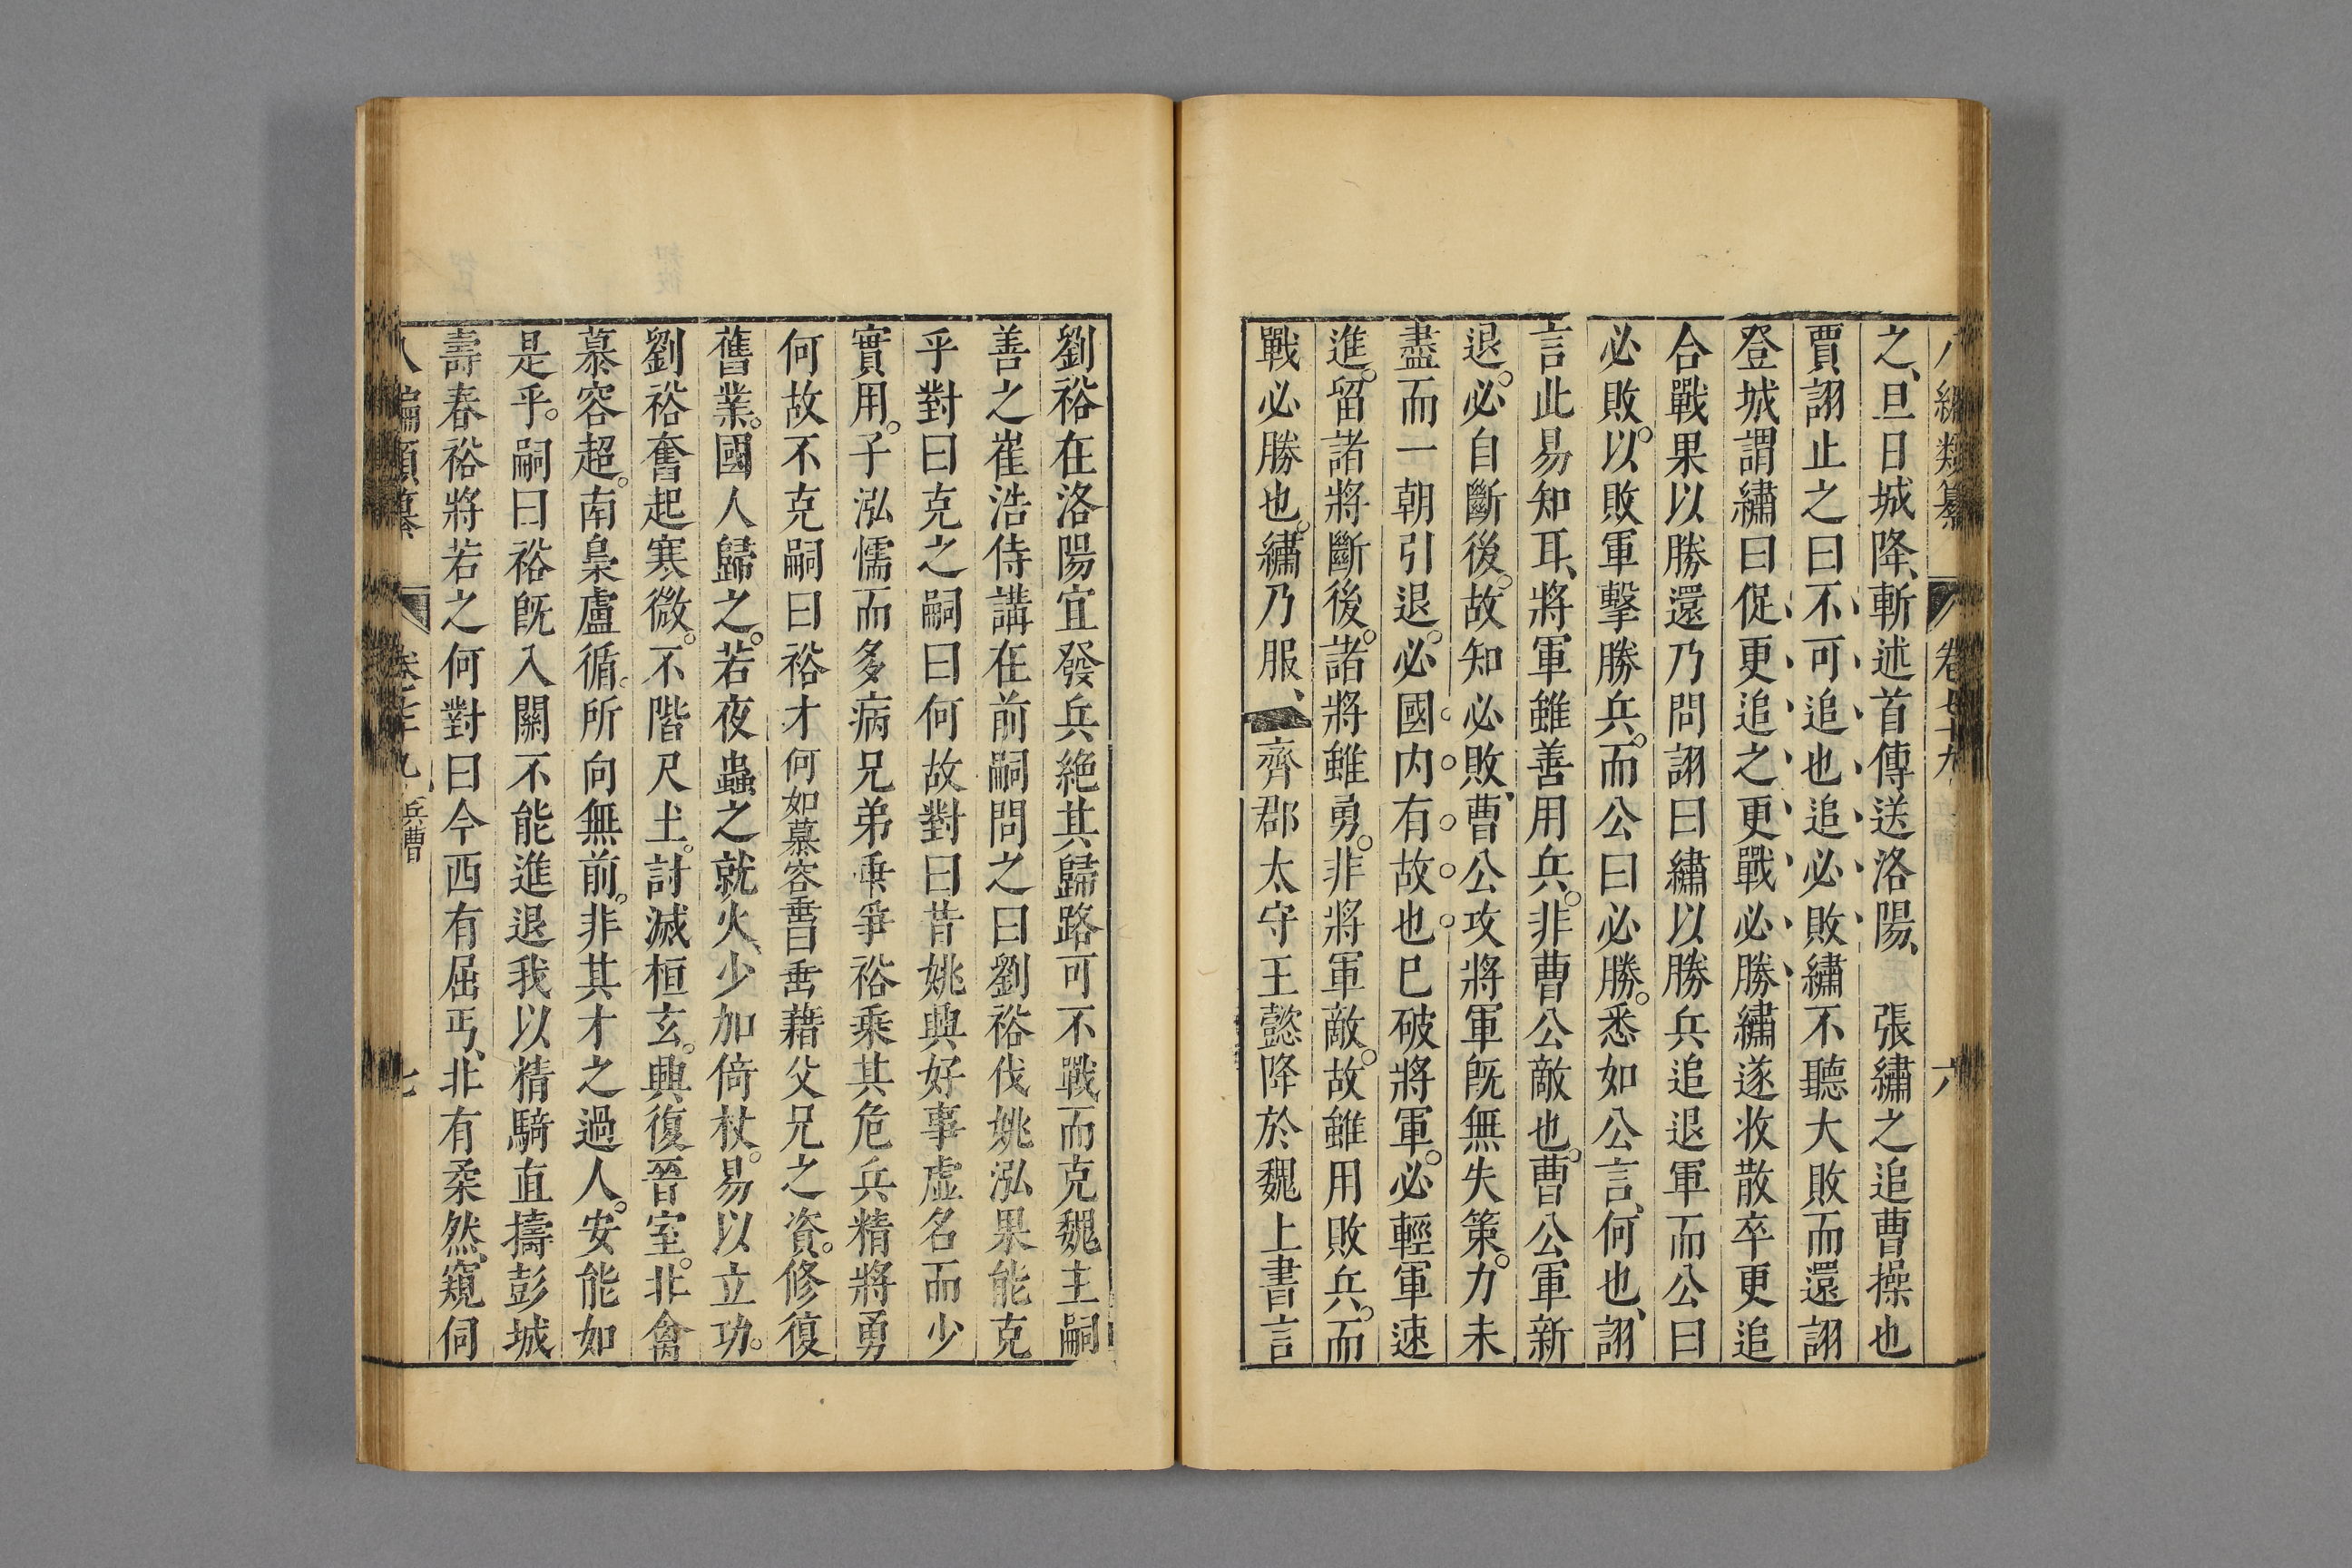 八編類纂 卷七十九 六
之、旦日城降、斬述首傳送洛陽、 張繡之追曹操也
賈詡止之曰不可追也追必敗繡不聽大敗而還詡
登城謂繡曰促更追之更戰必勝繡遂收散卒更追
合戰果以勝還乃問詡曰繡以勝兵追退軍而公曰
必敗。以敗軍擊勝兵。而公曰必勝。悉如公言、何也、詡
言此易知耳、將軍雖善用兵。非曹公敵也。曹公軍新
退。必自斷後。故知必敗、曹公攻將軍旣無失策。力未
盡而一朝引退。必國内有故也巳破將軍。必輕軍速
進。留諸將斷後。諸將雖勇。非將軍敵。故雖用敗兵。而
戰必勝也。繡乃服、 齊郡太守王懿降於魏上書言
劉裕在洛陽宜發兵絶其歸路可不戰而克魏主嗣
善之崔浩侍講在前嗣問之曰劉裕伐姚泓果能克
乎對曰克之嗣曰何故對曰昔姚興好事虛名而少
實用。子泓懦而多病兄弟乖爭裕乘其危兵精將勇
何故不克嗣曰裕才何如慕容垂曰垂藉父兄之資。修復
舊業。國人歸之。若夜蟲之就火、少加倚杖。易以立功。
劉裕奮起寒微。不階尺土。討滅桓玄。興復晉室。北禽
慕容超。南梟盧循。所向無前。非其才之過人。安能如
是乎。嗣曰裕旣入關不能進退我以精騎直擣彭城
壽春裕將若之何對曰今西有屈丐、北有柔然、窺伺
八編類纂 卷七十九 兵曹 七